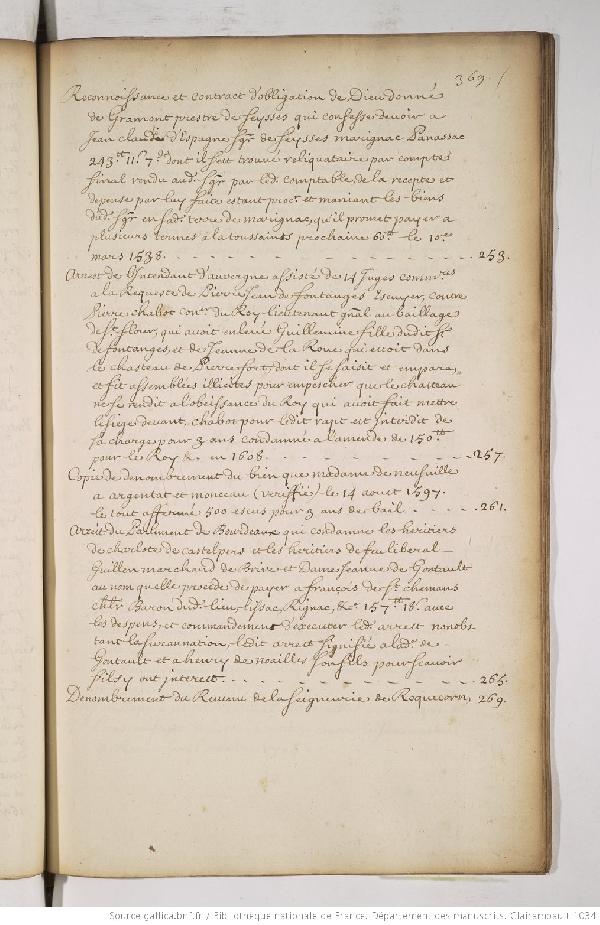 369. /
Reconnoissance et contract d'obligation de Dieu donné
de Gramont prestre de Seysses qui confesse devoir a
Jean claude d'Espagne sgr. de Seysses marignac Panassac
243tt 11s 7d dont il seroit trouvé reliquataire par compte
final rendu aud. sgr par led. comptable de la recepte et
depense par luy faite estant procr. et maniant les biens
dud. sgr en sad. terre de marignac, qu'il promet payer a
plusieurs termes a la toussaints prochaine 60tt le 10me
mars 1538. 253.
Arrest de l'Intendant d'auvergne assisté de 14 Juges commres
a la Requeste de Pierre Jean de fontanges escuyer, contre
Pierre chabot coner. du Roy lieutenant gñal au baillage
de St. flour, qui avoit enlevé Guillemine fille dudit Sr.
de fontanges, et de Jeanne de la Roue qui estoit dans
le chasteau de Pierrefort, dont il se saisit et empara,
et fit assemblées illicites pour empescher que le chasteau
ne se rendit a l'obeissance du Roy qui avoit fait mettre
le siege devant, chabot pour ledit rapt est interdit de
sa charge pour 3 ans condamné a l'amende de 150tt
pour le Roy &c. en 1608. 257.
Copie de denombrement du bien que madame de neufville
a argentat et monceau (veriffié) le 14 aout 1597.
le tout affermé 500 escus pour 3 ans de bail. 261.
Arrest du Parlement de Bourdeaux qui condamne les heritiers
de charlote de Castelpers et les heritiers de feu liberal
Guillon marchand de Brive et Dame Jeanne de Gontault
au nom quelle procede de payer a françois de St. chamans
chlr Baron dud. lieu, lissac, Rignac, &c. 157tt 18s. avec
les despens, et commandement d'executer led. arrest nonobs
tant la surannation, ledit arrest signifié a lad. de
Gontault et a henry de noailles son fils pour scavoir
s'ils y ont interest. 265.
Denombrement du Revenu de la seigneurie de Roquecorn, 269.
Source gallica.bnf.fr / Bibliothèque nationale de France. Département des manuscrits. Clairambault 1034